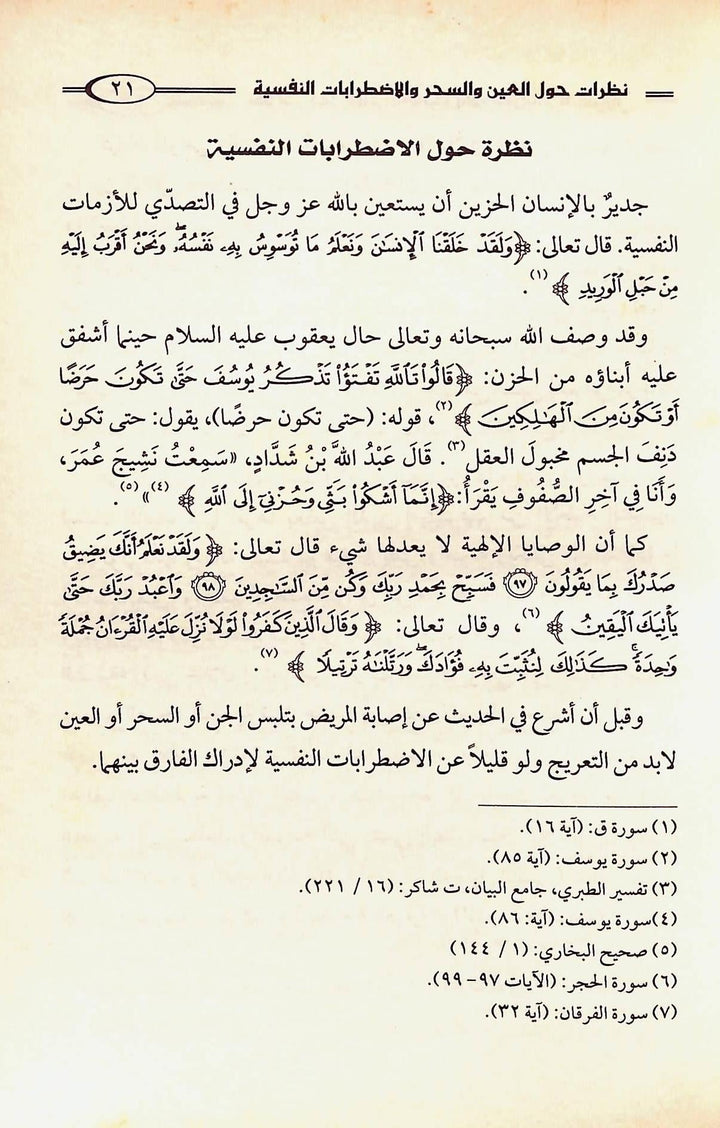 نظرات حول العين والسحر والاضطرابات النفسية ٢١
نظرة حول الاضطرابات النفسية
جديرٌ بالإنسان الحزين أن يستعين بالله عز وجل في التصدّي للأزمات
النفسية. قال تعالى: ﴿وَلَقَدْ خَلَقْنَا ٱلْإِنسَٰنَ وَنَعْلَمُ مَا تُوَسْوِسُ بِهِۦ نَفْسُهُۥ ۖ وَنَحْنُ أَقْرَبُ إِلَيْهِ
مِنْ حَبْلِ ٱلْوَرِيدِ﴾ (١).
وقد وصف الله سبحانه وتعالى حال يعقوب عليه السلام حينما أشفق
عليه أبناؤه من الحزن: ﴿قَالُوا۟ تَٱللَّهِ تَفْتَؤُا۟ تَذْكُرُ يُوسُفَ حَتَّىٰ تَكُونَ حَرَضًا
أَوْ تَكُونَ مِنَ ٱلْهَٰلِكِينَ﴾ (٢)، قوله: (حتى تكون حرضًا)، يقول: حتى تكون
دَنِفَ الجسم مخبولَ العقل(٣). قَالَ عَبْدُ اللهَّ بْنُ شَدَّادٍ، «سَمِعْتُ نَشِيجَ عُمَرَ،
وَأَنَا فِي آخِرِ الصُّفُوفِ يَقْرَأُ: ﴿إِنَّمَآ أَشْكُوا۟ بَثِّى وَحُزْنِىٓ إِلَى ٱللَّهِ﴾ (٤)» (٥).
كما أن الوصايا الإلهية لا يعدلها شيء قال تعالى: ﴿وَلَقَدْ نَعْلَمُ أَنَّكَ يَضِيقُ
صَدْرُكَ بِمَا يَقُولُونَ ۝٩٧ فَسَبِّحْ بِحَمْدِ رَبِّكَ وَكُن مِّنَ ٱلسَّٰجِدِينَ ۝٩٨ وَٱعْبُدْ رَبَّكَ حَتَّىٰ
يَأْتِيَكَ ٱلْيَقِينُ﴾ (٦)، وقال تعالى: ﴿وَقَالَ ٱلَّذِينَ كَفَرُوا۟ لَوْلَا نُزِّلَ عَلَيْهِ ٱلْقُرْءَانُ جُمْلَةً
وَٰحِدَةً ۚ كَذَٰلِكَ لِنُثَبِّتَ بِهِۦ فُؤَادَكَ ۖ وَرَتَّلْنَٰهُ تَرْتِيلًا﴾ (٧).
وقبل أن أشرع في الحديث عن إصابة المريض بتلبس الجن أو السحر أو العين
لابد من التعريج ولو قليلاً عن الاضطرابات النفسية لإدراك الفارق بينهما.
(١) سورة ق: (آية ١٦).
(٢) سورة يوسف: (آية ٨٥).
(٣) تفسير الطبري، جامع البيان، ت شاكر: (١٦ / ٢٢١).
(٤)سورة يوسف: (آية: ٨٦).
(٥) صحيح البخاري: (١ / ١٤٤)
(٦) سورة الحجر: (الآيات ٩٧- ٩٩).
(٧) سورة الفرقان: (آية ٣٢).